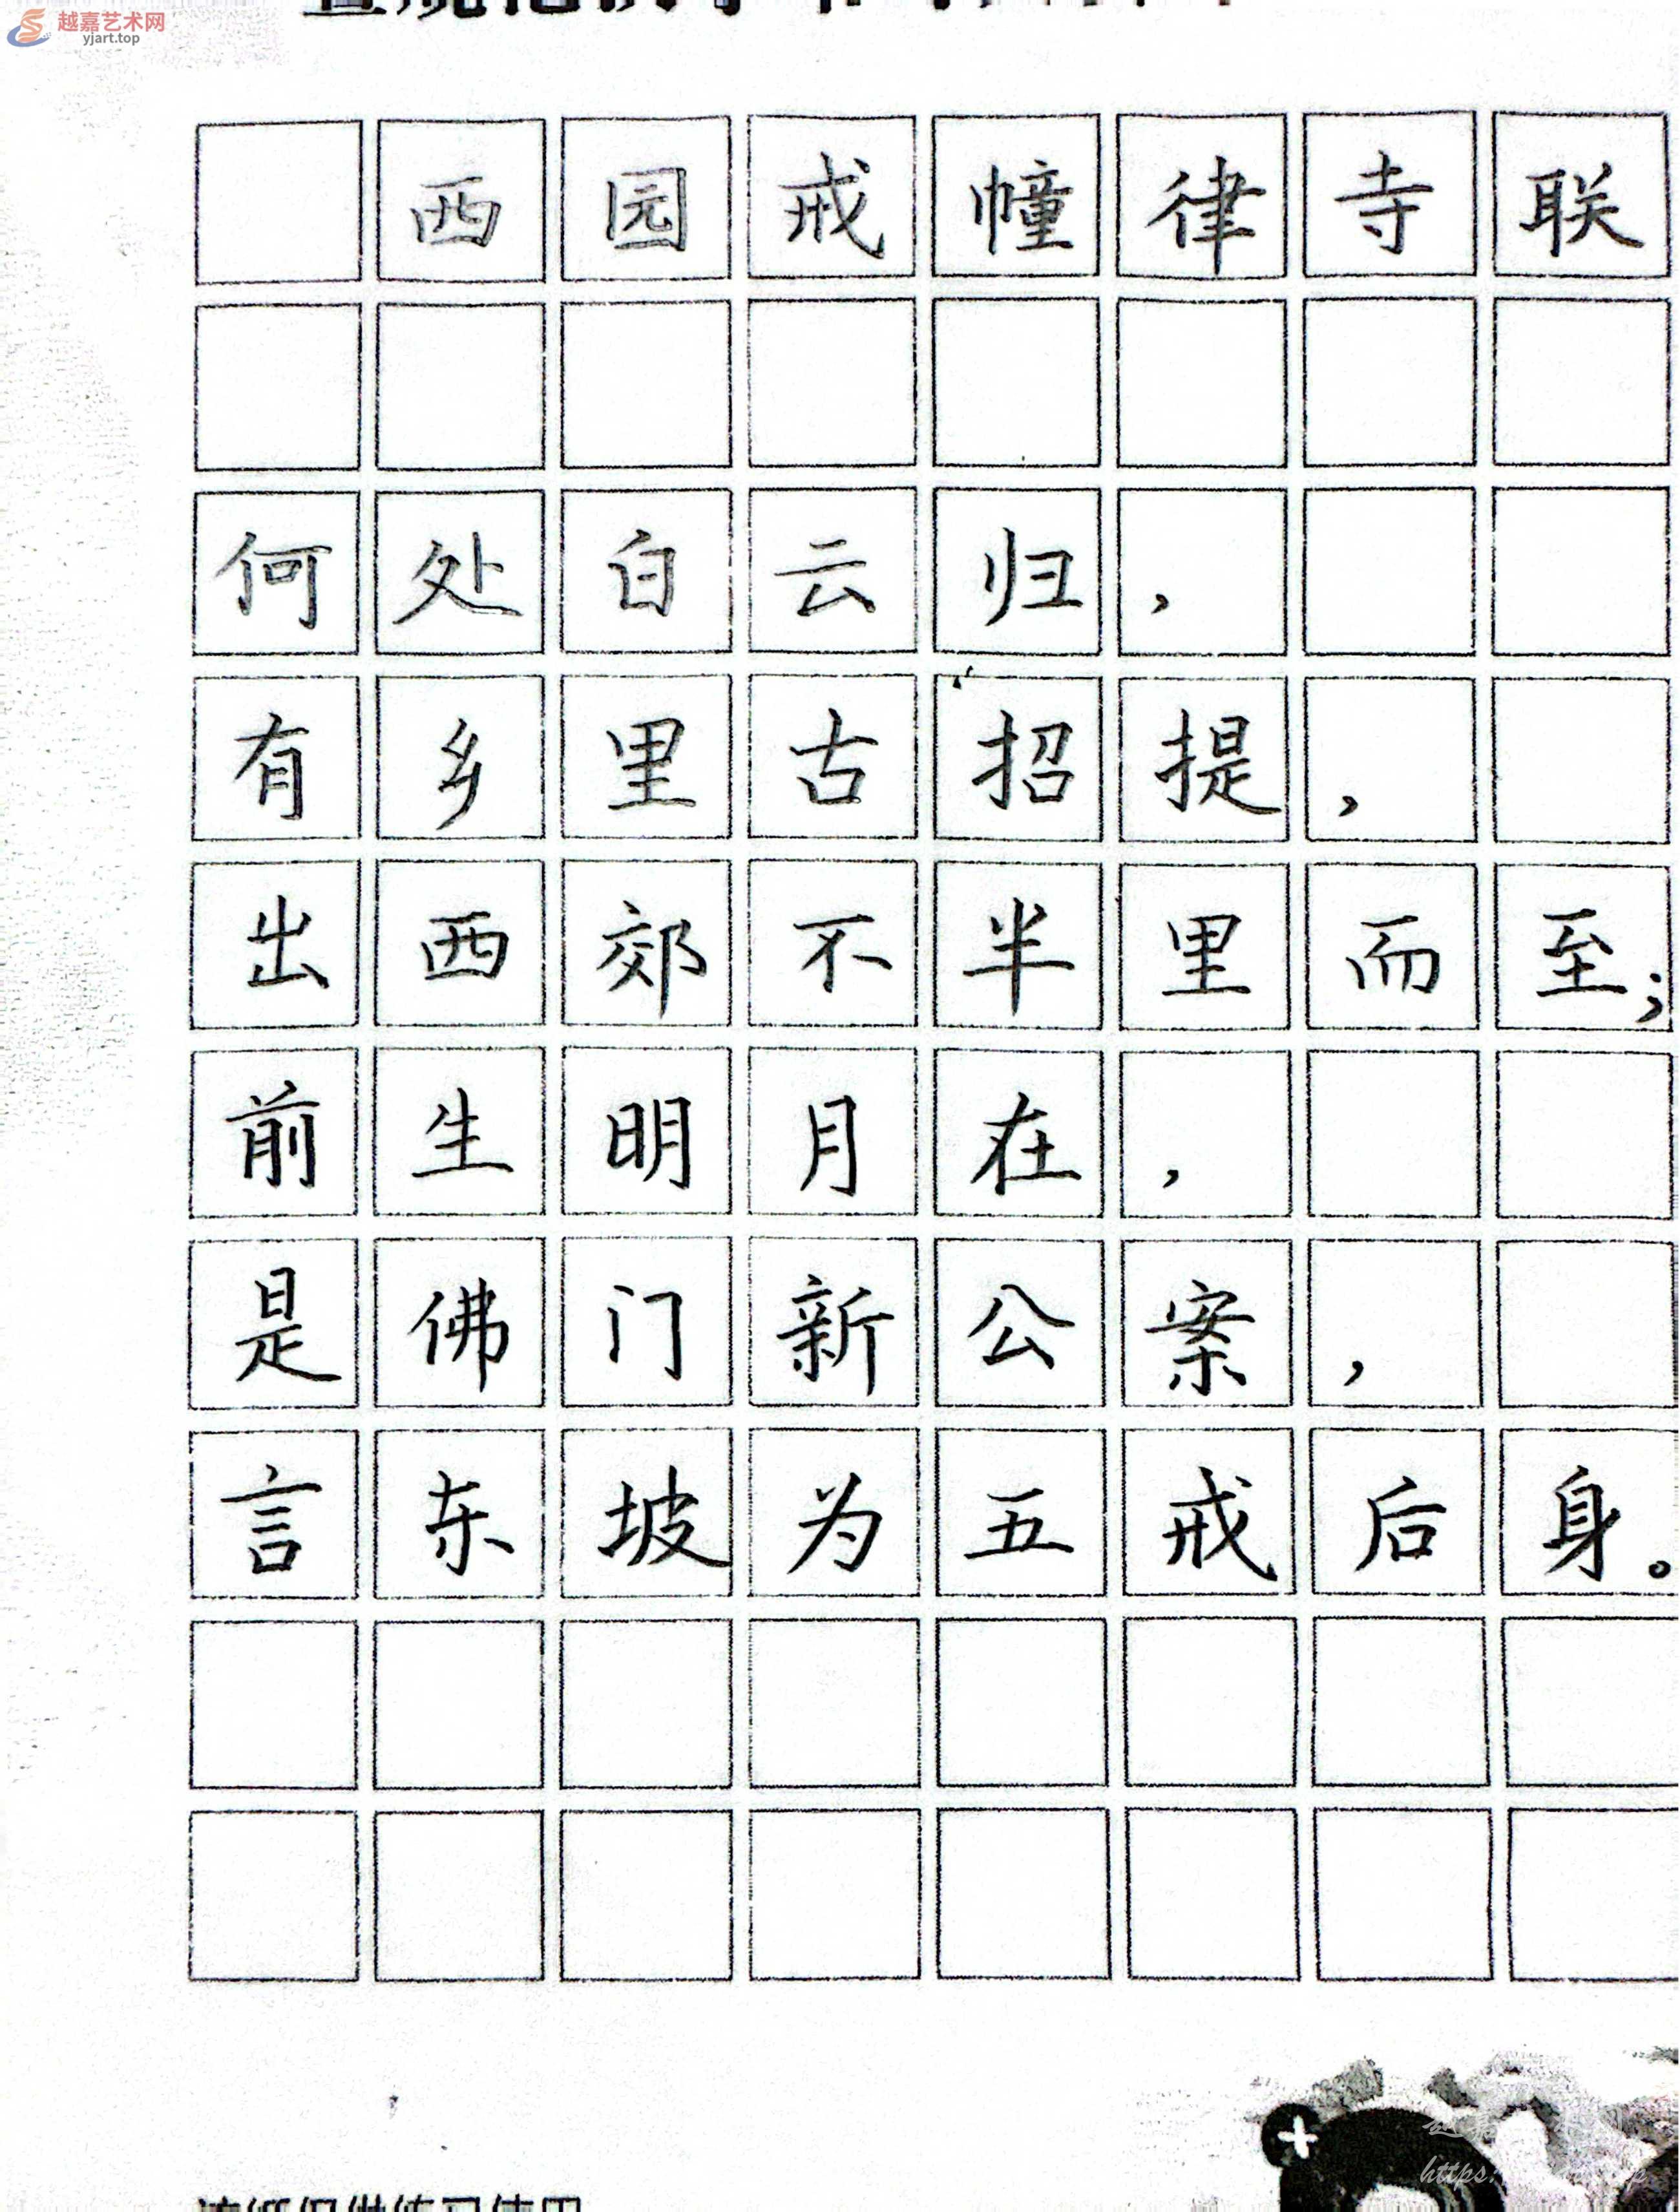 越嘉艺术网
yjart.top
西园戒幢律寺联
何处白云归，
有乡里古招提，
出西郊不半里而至；
前生明月在，
是佛门新公案，
言东坡为五戒后身。